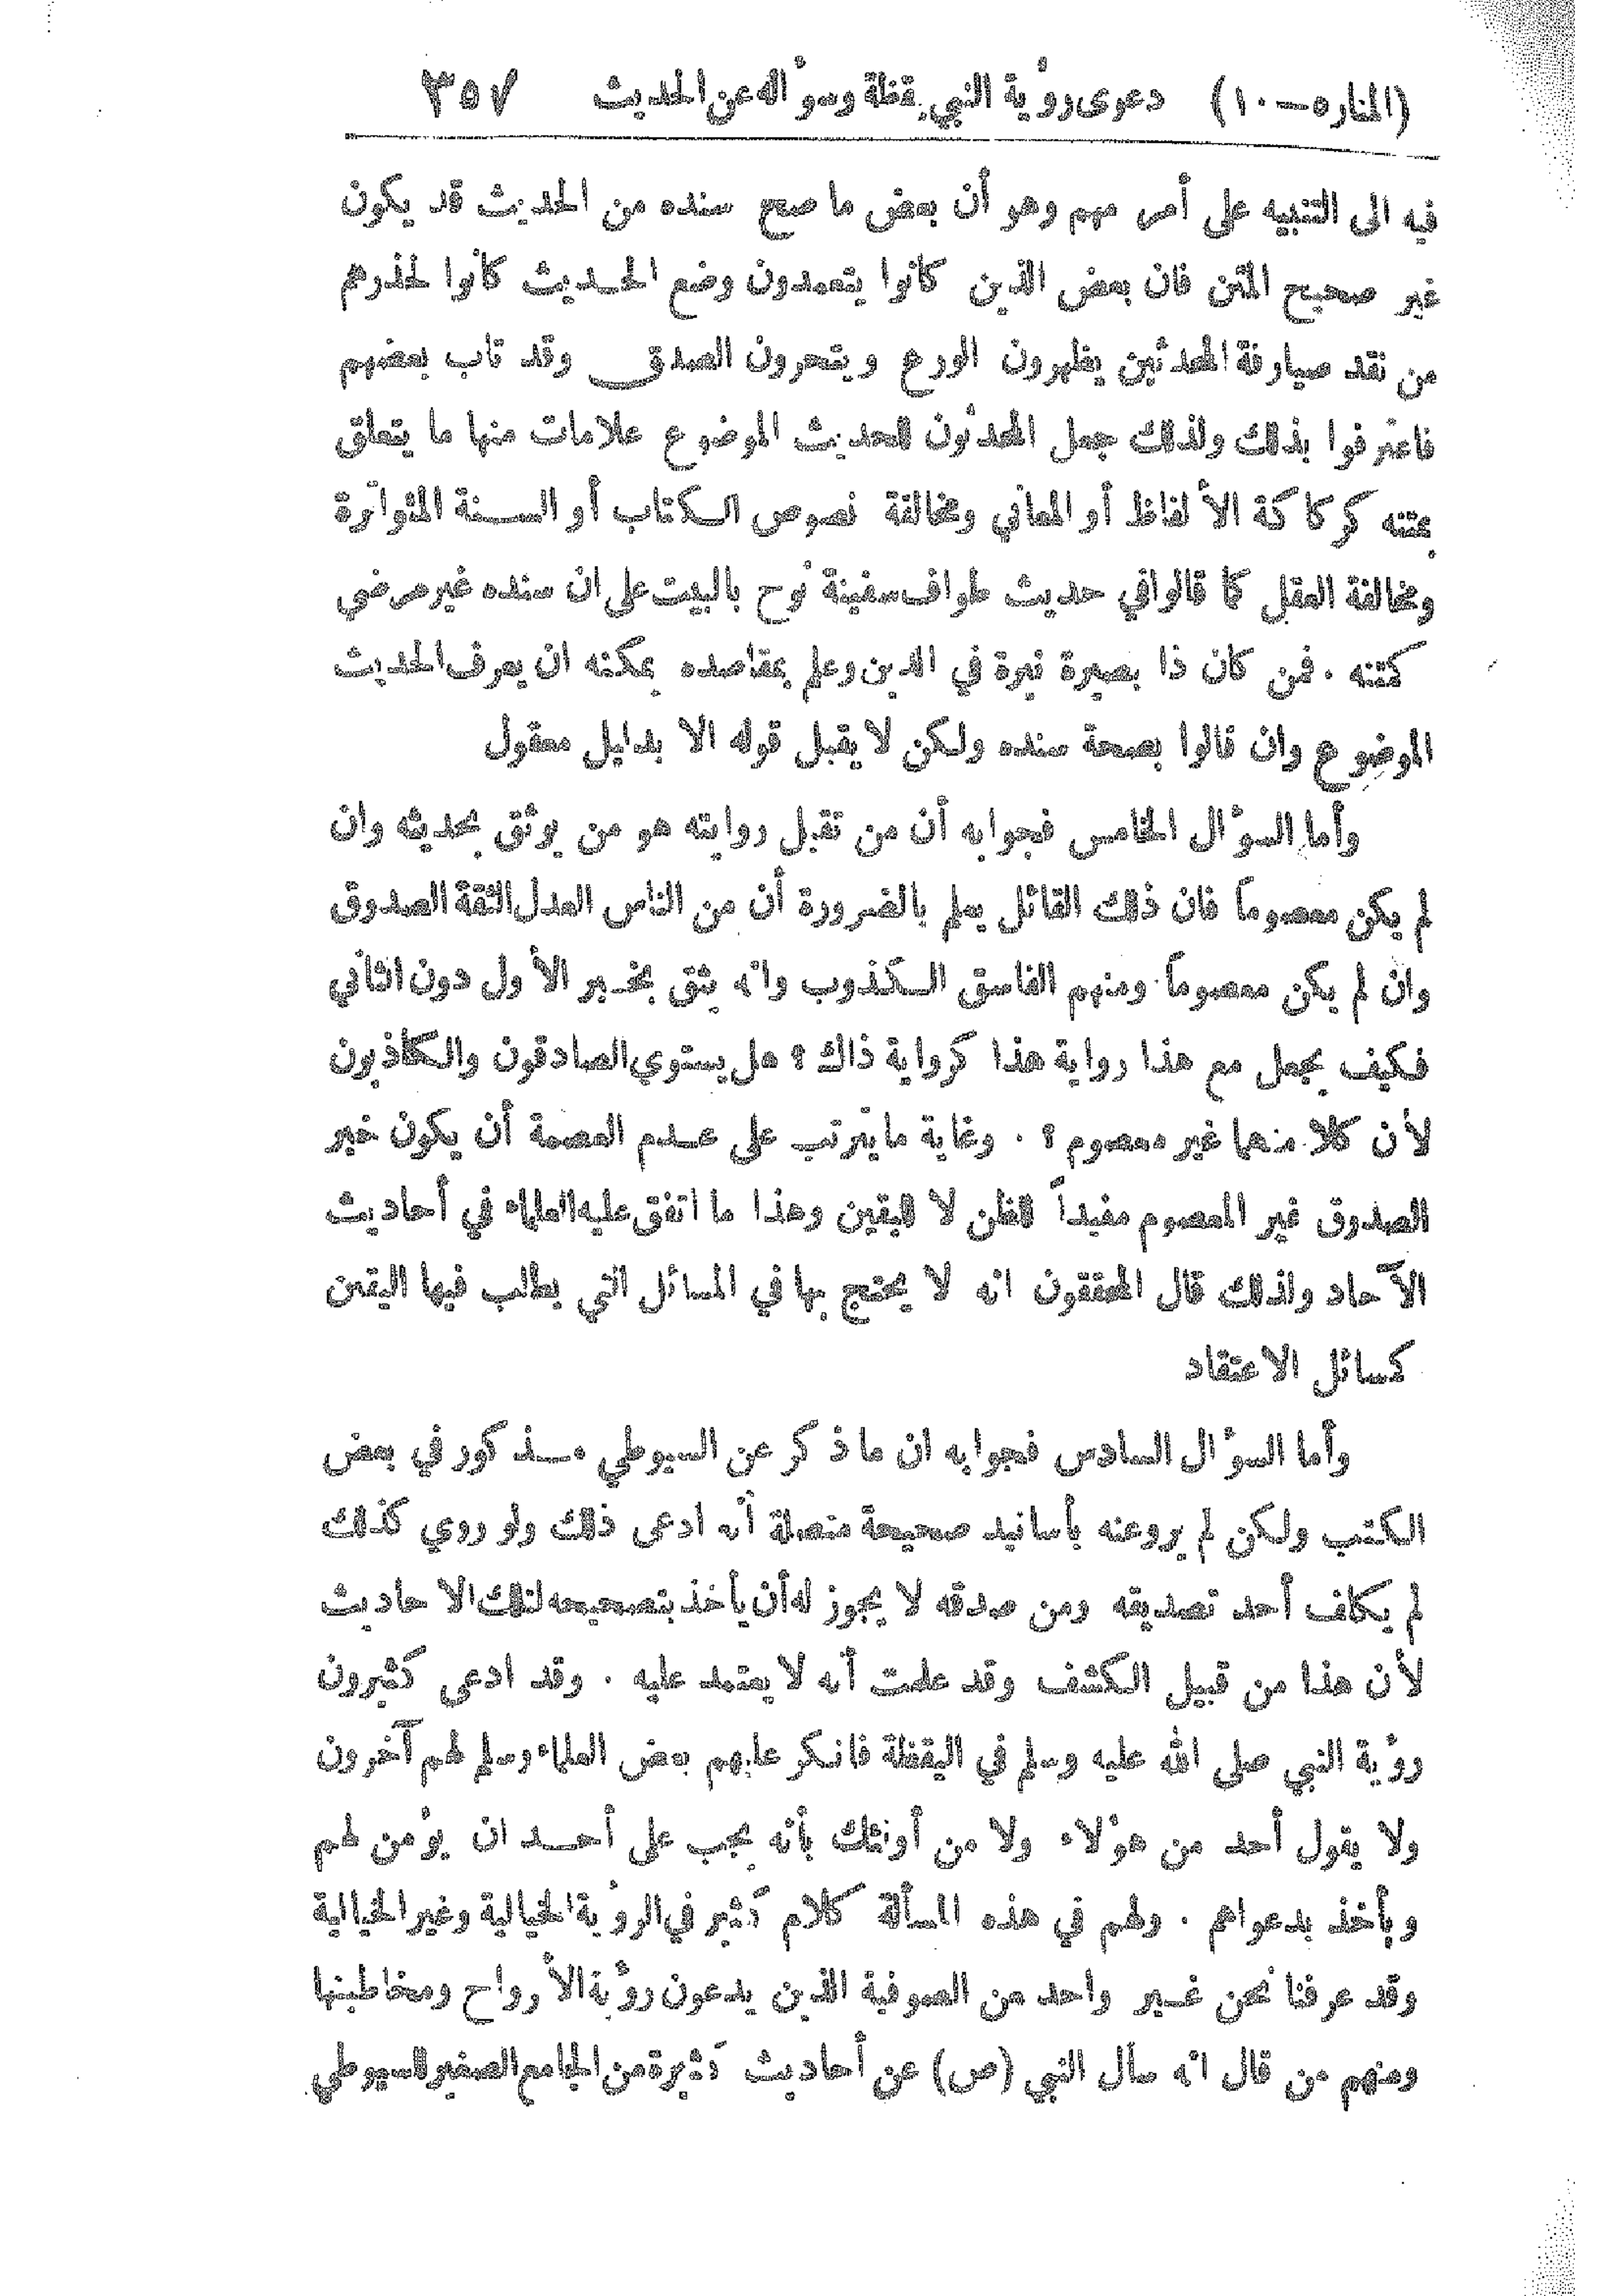 (المنار ٥ — ١٠) دعوى رؤية النبي يقظة وسؤاله عن الحديث ٣٥٧
فيه الى التنبيه على أمر مهم وهو أن بعض ما صح سنده من الحديث قد يكون
غير صحيح المتن فان بعض الذين كانوا يتعمدون وضع الحديث كانوا لحذرهم
من نقد صيارفة المحدثين يظهرون الورع ويتحرون الصدق وقد تاب بعضهم
فاعترفوا بذلك ولذلك جعل المحدثون للحديث الموضوع علامات منها ما يتعلق
بمتنه كركاكة الألفاظ أو المعاني ومخالفة نصوص الكتاب أو السنة المتواترة
ومخالفة العقل كما قالوا في حديث طواف سفينة نوح بالبيت على ان سنده غير مرضي
كمتنه . فمن كان ذا بصيرة نيرة في الدين وعلم بمقاصده يمكنه ان يعرف الحديث
الموضوع وان قالوا بصحة سنده ولكن لا يقبل قوله الا بدليل معقول
وأما السؤال الخامس فجوابه أن من تقبل روايته هو من يوثق بحديثه وان
لم يكن معصوماً فان ذلك القائل يعلم بالضرورة أن من الناس العدل الثقة الصدوق
وان لم يكن معصوماً ومنهم الفاسق الكذوب وانه يثق بخبر الأول دون الثاني
فكيف يجعل مع هذا رواية هذا كرواية ذاك ؟ هل يستوي الصادقون والكاذبون
لأن كلا منهما غير معصوم ؟ . وغاية ما يترتب على عدم العصمة أن يكون خبر
الصدوق غير المعصوم مفيداً للظن لا لليقين وهذا ما اتفق عليه العلماء في أحاديث
الآحاد ولذلك قال المحققون انه لا يحتج بها في المسائل التي يطلب فيها اليقين
كمسائل الاعتقاد
وأما السؤال السادس فجوابه ان ما ذكر عن السيوطي مذكور في بعض
الكتب ولكن لم يرو عنه بأسانيد صحيحة متصلة أنه ادعى ذلك ولو روي كذلك
لم يكلف أحد تصديقه ومن صدقه لا يجوز له أن يأخذ بتصحيحه لتلك الاحاديث
لأن هذا من قبيل الكشف وقد علمت أنه لا يعتمد عليه . وقد ادعى كثيرون
رؤية النبي صلى الله عليه وسلم في اليقظة فانكر عليهم بعض العلماء وسلم لهم آخرون
ولا يقول أحد من هؤلاء ولا من أولئك بأنه يجب على أحد ان يؤمن لهم
ويأخذ بدعواهم . ولهم في هذه المسألة كلام كثير في الرؤية الخيالية وغير الخيالية
وقد عرفنا نحن غير واحد من الصوفية الذين يدعون رؤية الأرواح ومخاطبتها
ومنهم من قال انه سأل النبي (ص) عن أحاديث كثيرة من الجامع الصغير للسيوطي